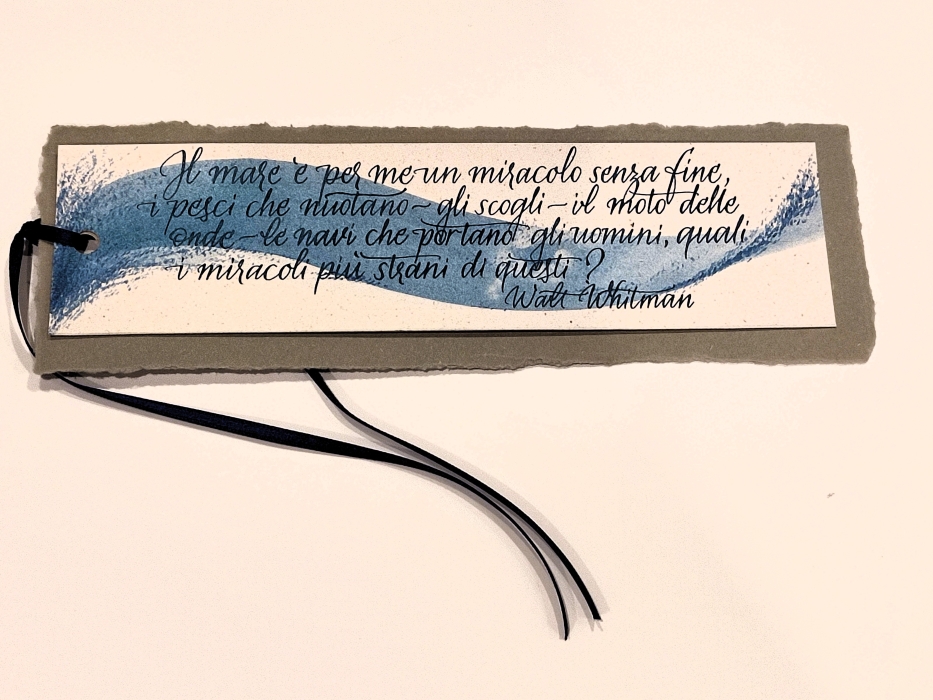 Il mare è per me un miracolo senza fine,
i pesci che nuotano – gli scogli – il moto delle
onde – le navi che portano gli uomini, quali
i miracoli più strani di questi ?
Walt Whitman